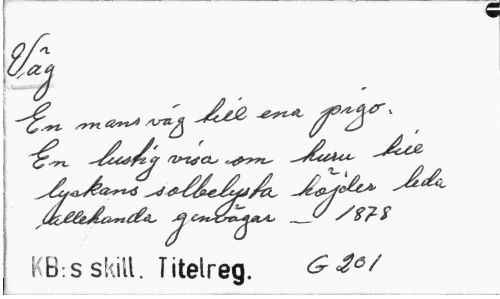 Väg
En mans väg till ena pigo.
En lustig visa om huru till
lyckans solbelysta höjder leda
allehanda genvägar — 1878
KB:s skill. Titelreg. G 201